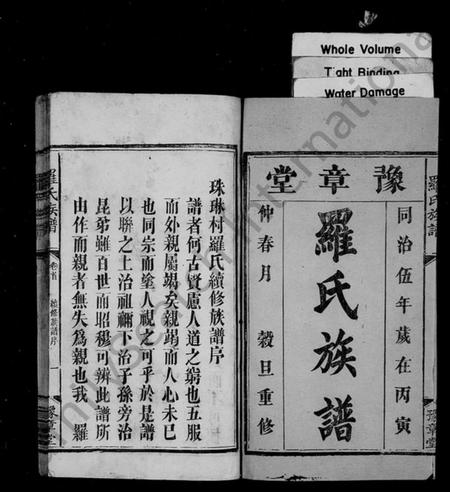 Whole Volume
Tight Binding
Water Damage
豫章堂
同治伍年歲在丙寅
羅氏族譜
仲春月 穀旦重修
羅氏族譜
豫章堂
珠琳村羅氏續修族譜序
譜者何古賢慮人道之窮也五服
而外親屬竭矣親竭而人心未已
也同宗而塗人視之可乎於是譜
以聯之上治祖禰下治子孫旁治
昆弟雖百世而昭穆可辨此譜所
由作而親者無失為親也我 羅
羅氏族譜
卷首
續修族譜序
一
豫章堂